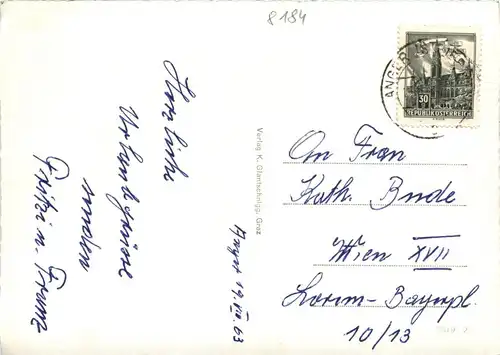 8184
Herzliche
Urlaubsgrüsse
senden
Fritzi u. Franz
Anger 19. VII 63
Verlag K. Glantschnigg, Graz
ANGER
30
REPUBLIK ÖSTERREICH
An Frau
Kath. Bude
Wien XVII
Lorenz-Bayerpl.
10/13